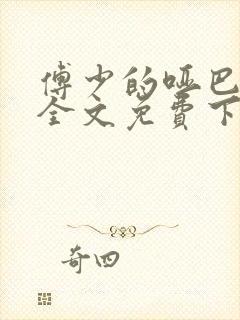 傅少的哑巴
全文免費下
奇四